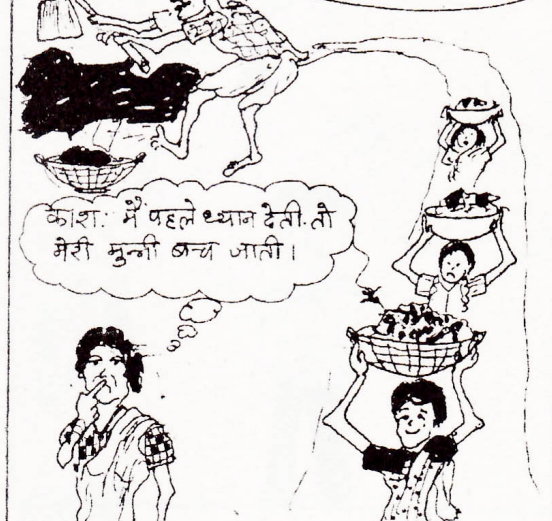 काश: मैं पहले ध्यान देती. तो
मेरी मुन्नी बच जाती।